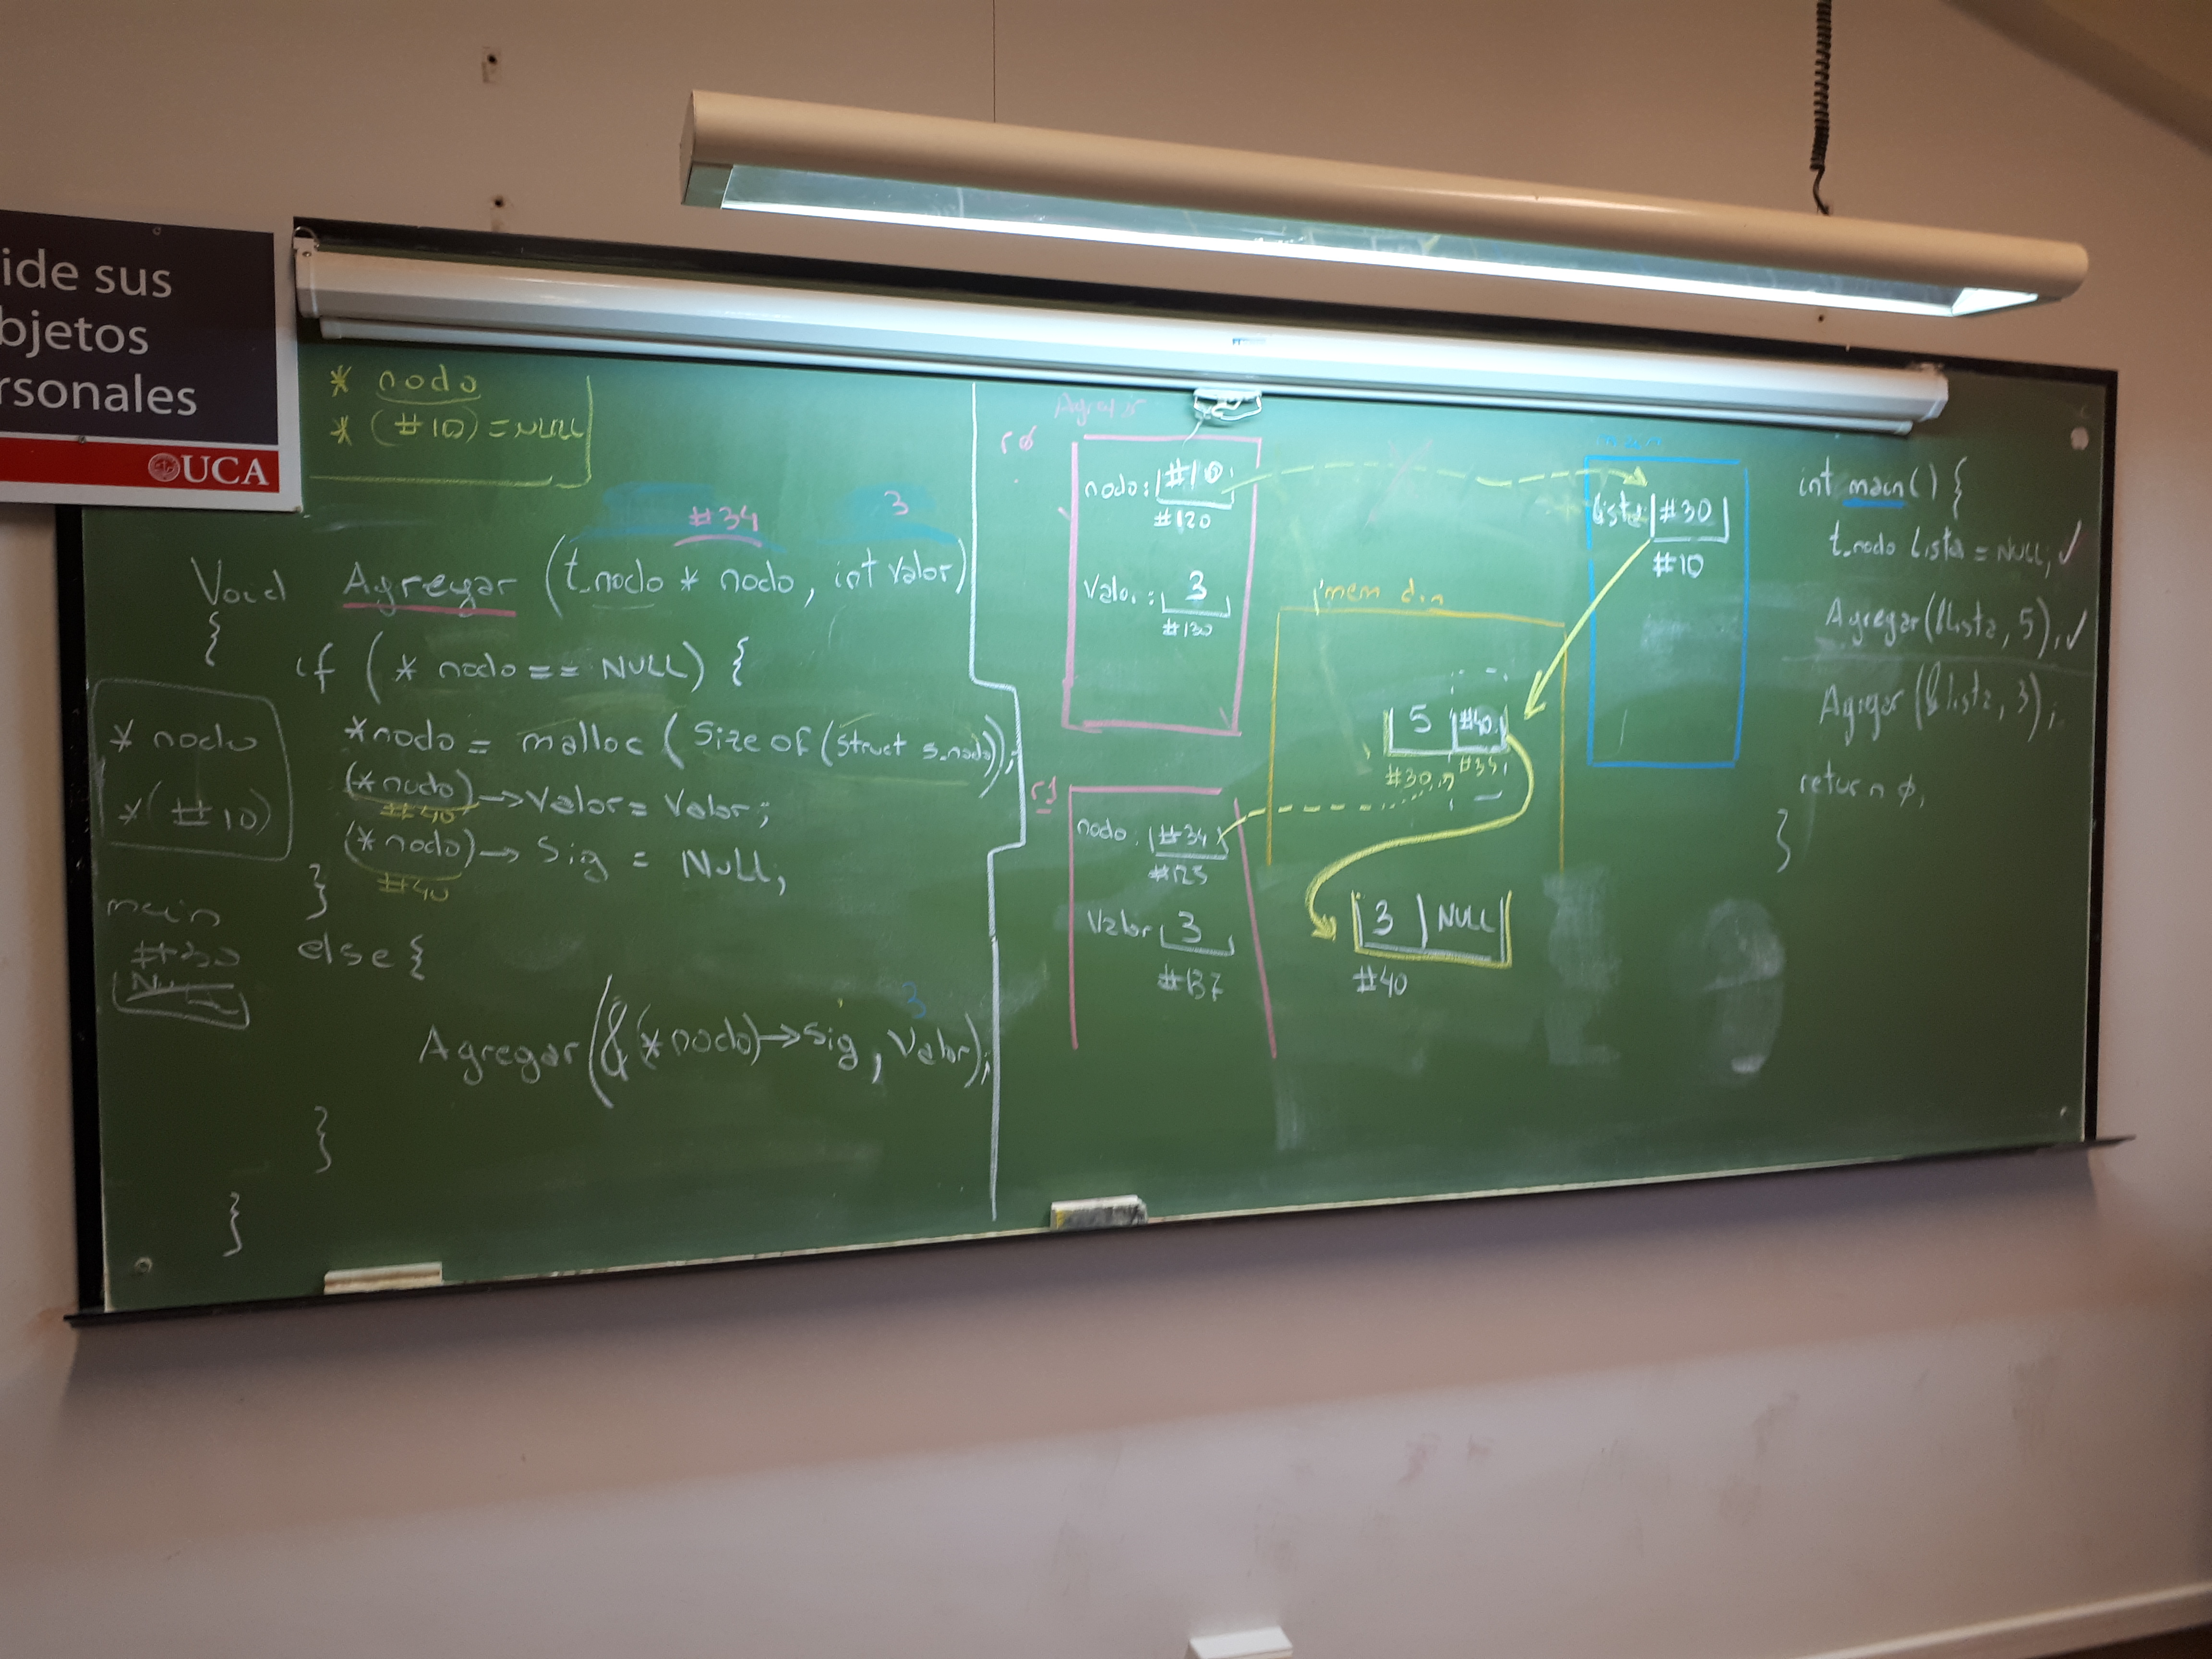 ide sus
bjetos
rsonales
UCA
* nodo
* (#10) = NULL
#34 3
Void Agregar (t_nodo * nodo, int valor)
{
if (* nodo == NULL) {
*nodo = malloc (Size of (struct s_nodo));
(*nodo) → Valor = Valor;
#40
(*nodo) → Sig = NULL;
#40
}
else {
3
Agregar (&(*nodo) → sig, Valor);
}
}
* nodo
* (#10)
main
#30
Agregar
r0
nodo: #10
#120
Valor: 3
#130
r1
nodo: #34
#125
Valor 3
#137
mem din
5 #40
#30 #34
3 NULL
#40
lista #30
#10
int main() {
t_nodo lista = NULL; ✓
Agregar (&lista, 5); ✓
Agregar (&lista, 3);
return 0;
}